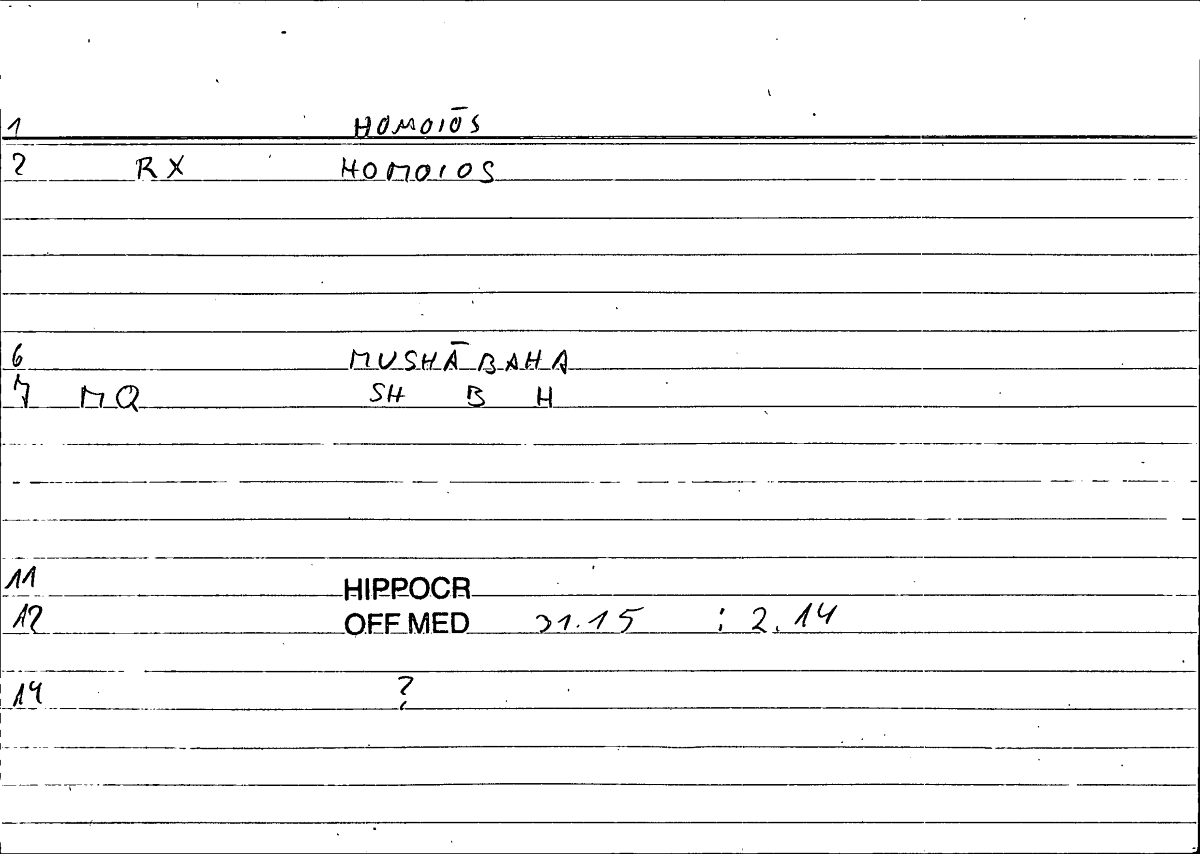 1 HOMOIŌS
2 RX HOMOIOS
6 MUSHĀBAHA
7 MQ SH B H
11 HIPPOCR
12 OFF MED 31.15 : 2.14
14 ?